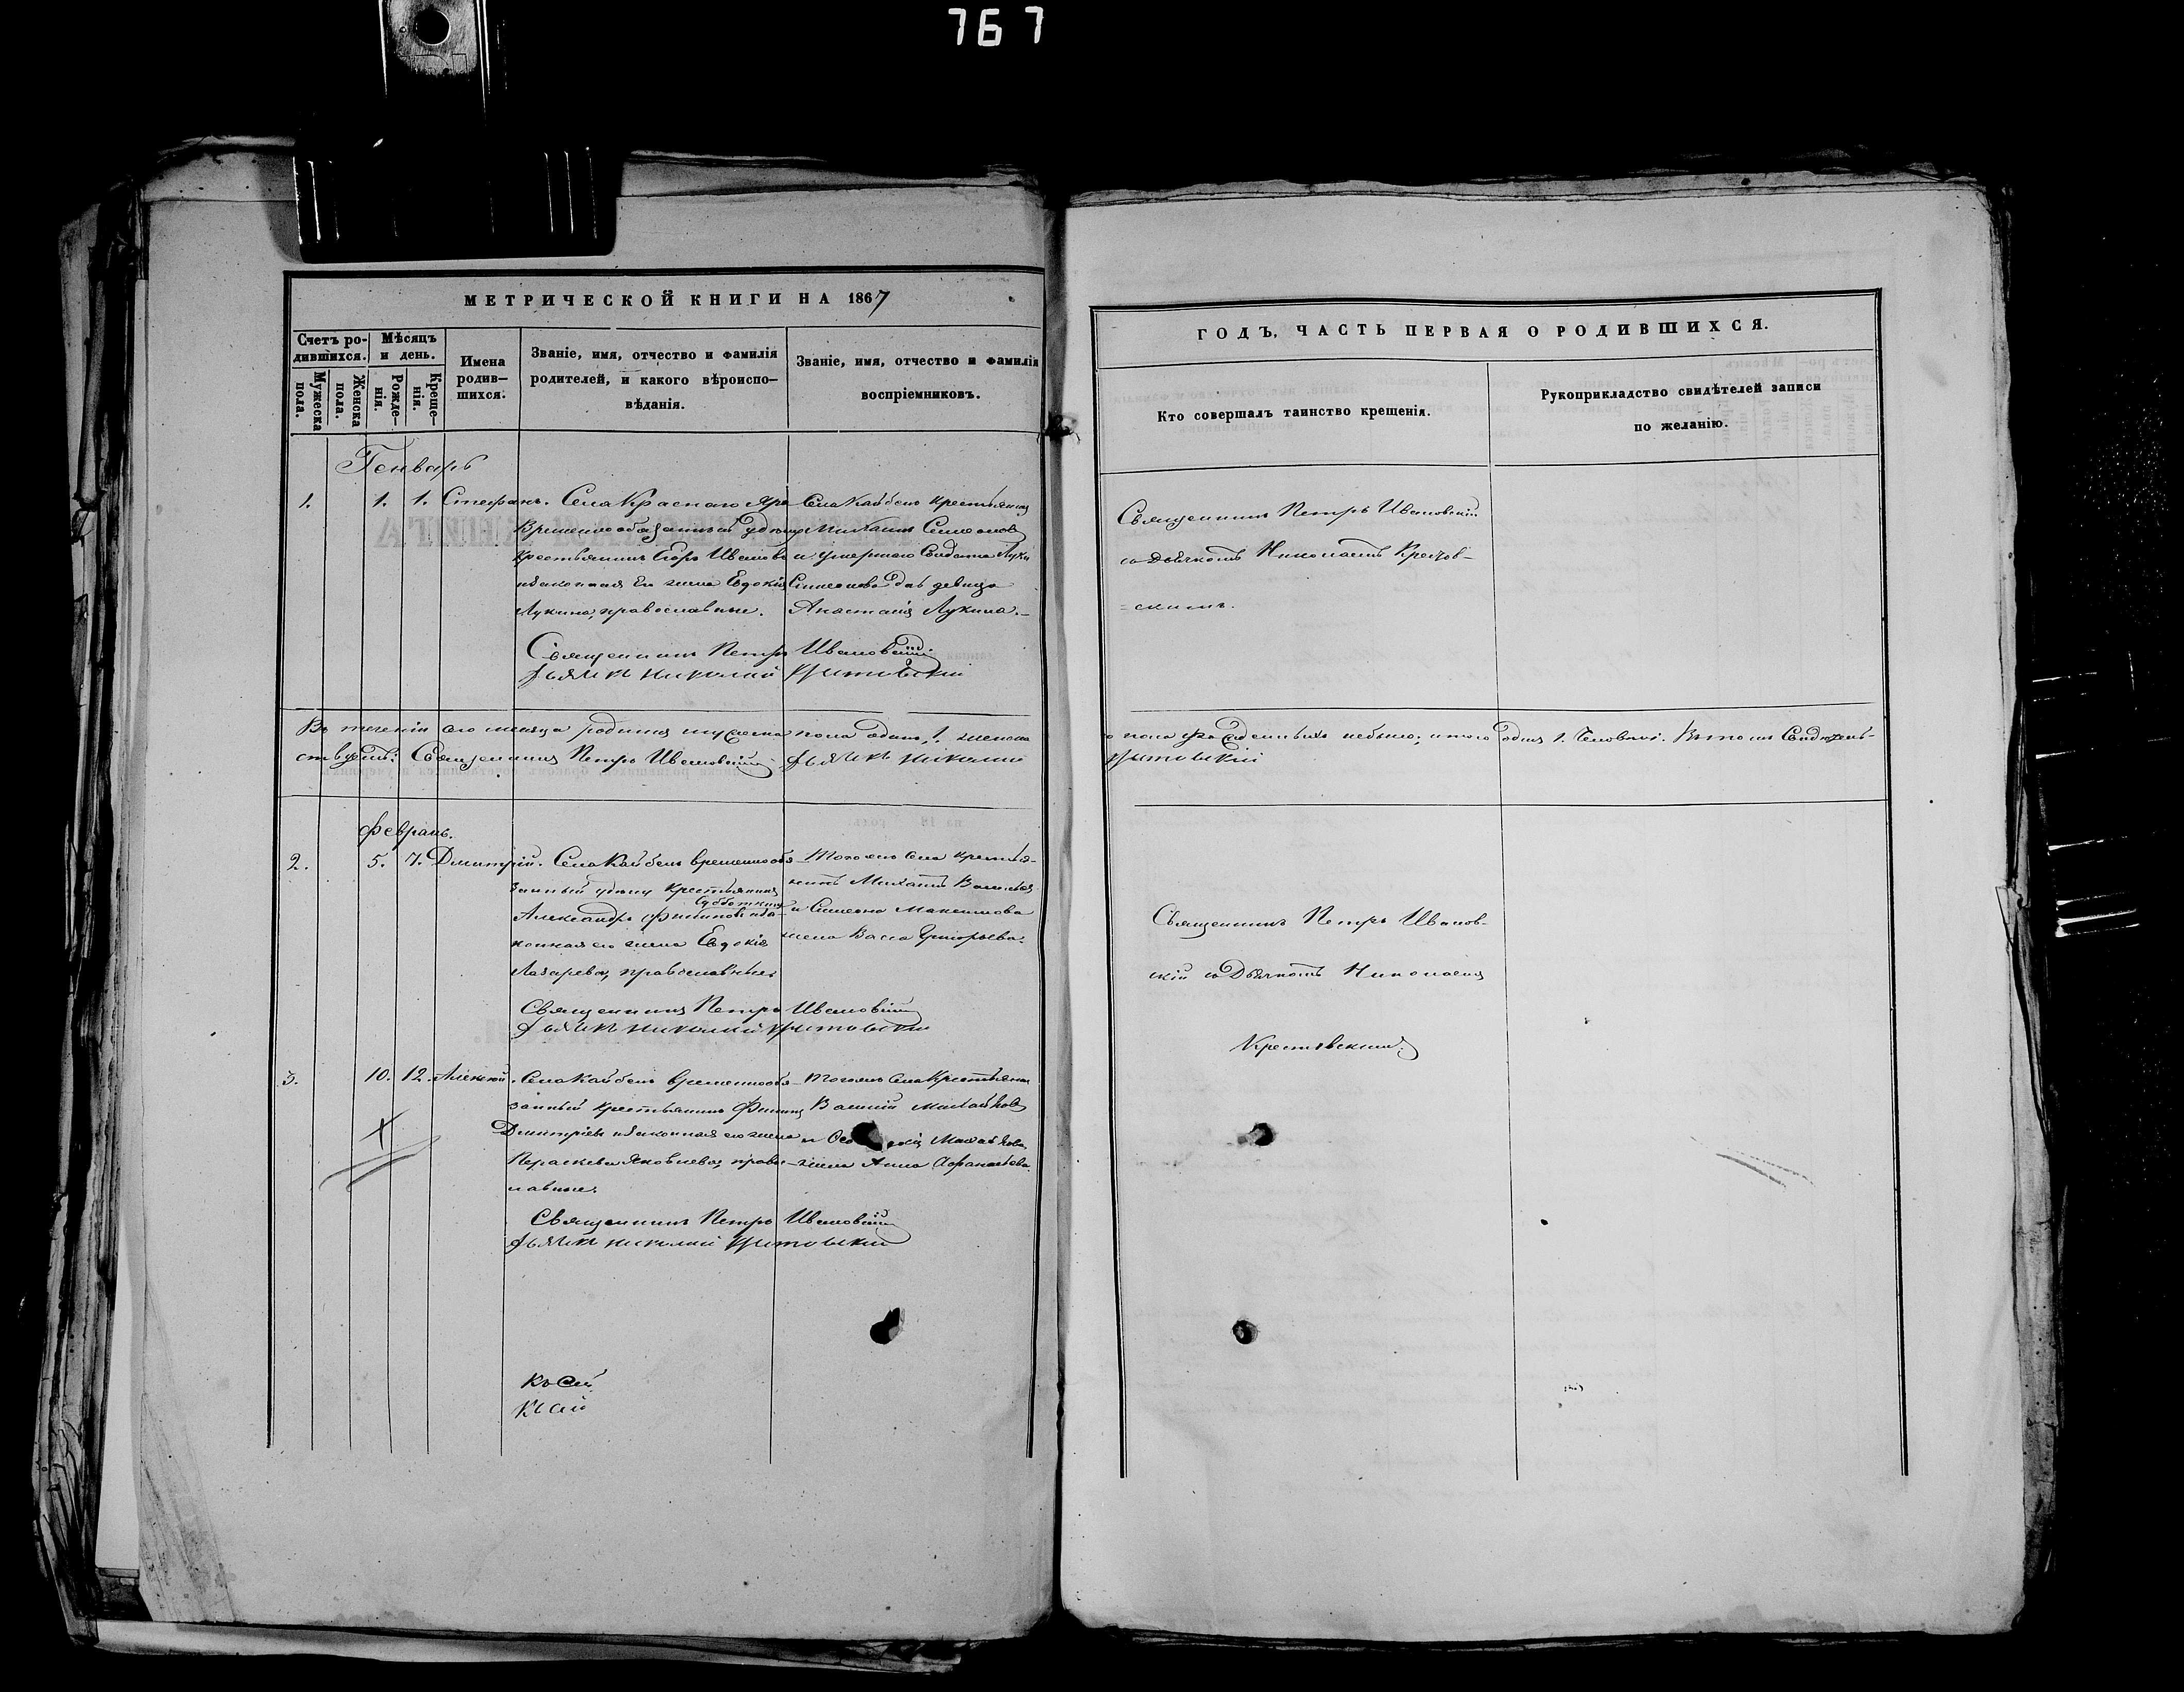 767
МЕТРИЧЕСКОЙ КНИГИ НА 1867
Счетъ ро-
дившихся.
Мѣсяцъ
и день.
Мужеска
пола.
Женска
пола.
Рожде-
нія.
Креще-
нія.
Имена
родив-
шихся.
Званіе, имя, отчество и фамилія
родителей, и какого вѣроиспо-
вѣданія.
Званіе, имя, отчество и фамилія
воспріемниковъ.
Генварь
1. 1. 1. Стефанъ.
Села Краснаго Яра
Временнообязанный удѣлу
крестьянинъ Егоръ Ивановъ
и законная его жена Евдокія
Лукина, православные.
Села Кайбелъ крестьянинъ
Михаилъ Симеоновъ
и умершаго Солдата Луки
Симеонова дочь девица
Анастасія Лукина.
Священникъ Петръ Ивановскій
Дьячикъ Николай
Въ теченіи сего месяца родился мужеска пола одинъ, 1. женска
ствуетъ: Священникъ Петръ Ивановскій Дьячикъ Николай
Февраль.
2. 5. 7. Дмитрій.
Села Кайбелъ временнообя-
занный удѣлу крестьянинъ
Субботинъ
Александръ Филиповъ и за-
конная его жена Евдокія
Лазарева, православные.
Тогоже села крестья-
нинъ Михаилъ Васильевъ
и Симеона Максимова
жена Васса Григорьева.
Священникъ Петръ Ивановскій
Дьячикъ Николай
3. 10. 12. Алексѣй.
Села Кайбелъ временнообя-
занный крестьянинъ Филипъ
Дмитріевъ и законная его жена
Параскева Яковлева, право-
славные.
Тогоже села крестьянинъ
Василій Михайловъ
и Михайлова
жена Анна Афанасьева.
Священникъ Петръ Ивановскій
Дьячикъ Николай
Къ сей
Къ сей
ГОДЪ, ЧАСТЬ ПЕРВАЯ О РОДИВШИХСЯ.
Кто совершалъ таинство крещенія.
Рукоприкладство свидѣтелей записи
по желанію.
Священникъ Петръ Ивановскій
съ Дьячкомъ Николаемъ
скимъ.
пола небыло; итого одинъ 1. Человѣкъ. Въ томъ Свидѣтель-
Священникъ Петръ Иванов-
скій съ Дьячкомъ Николаемъ